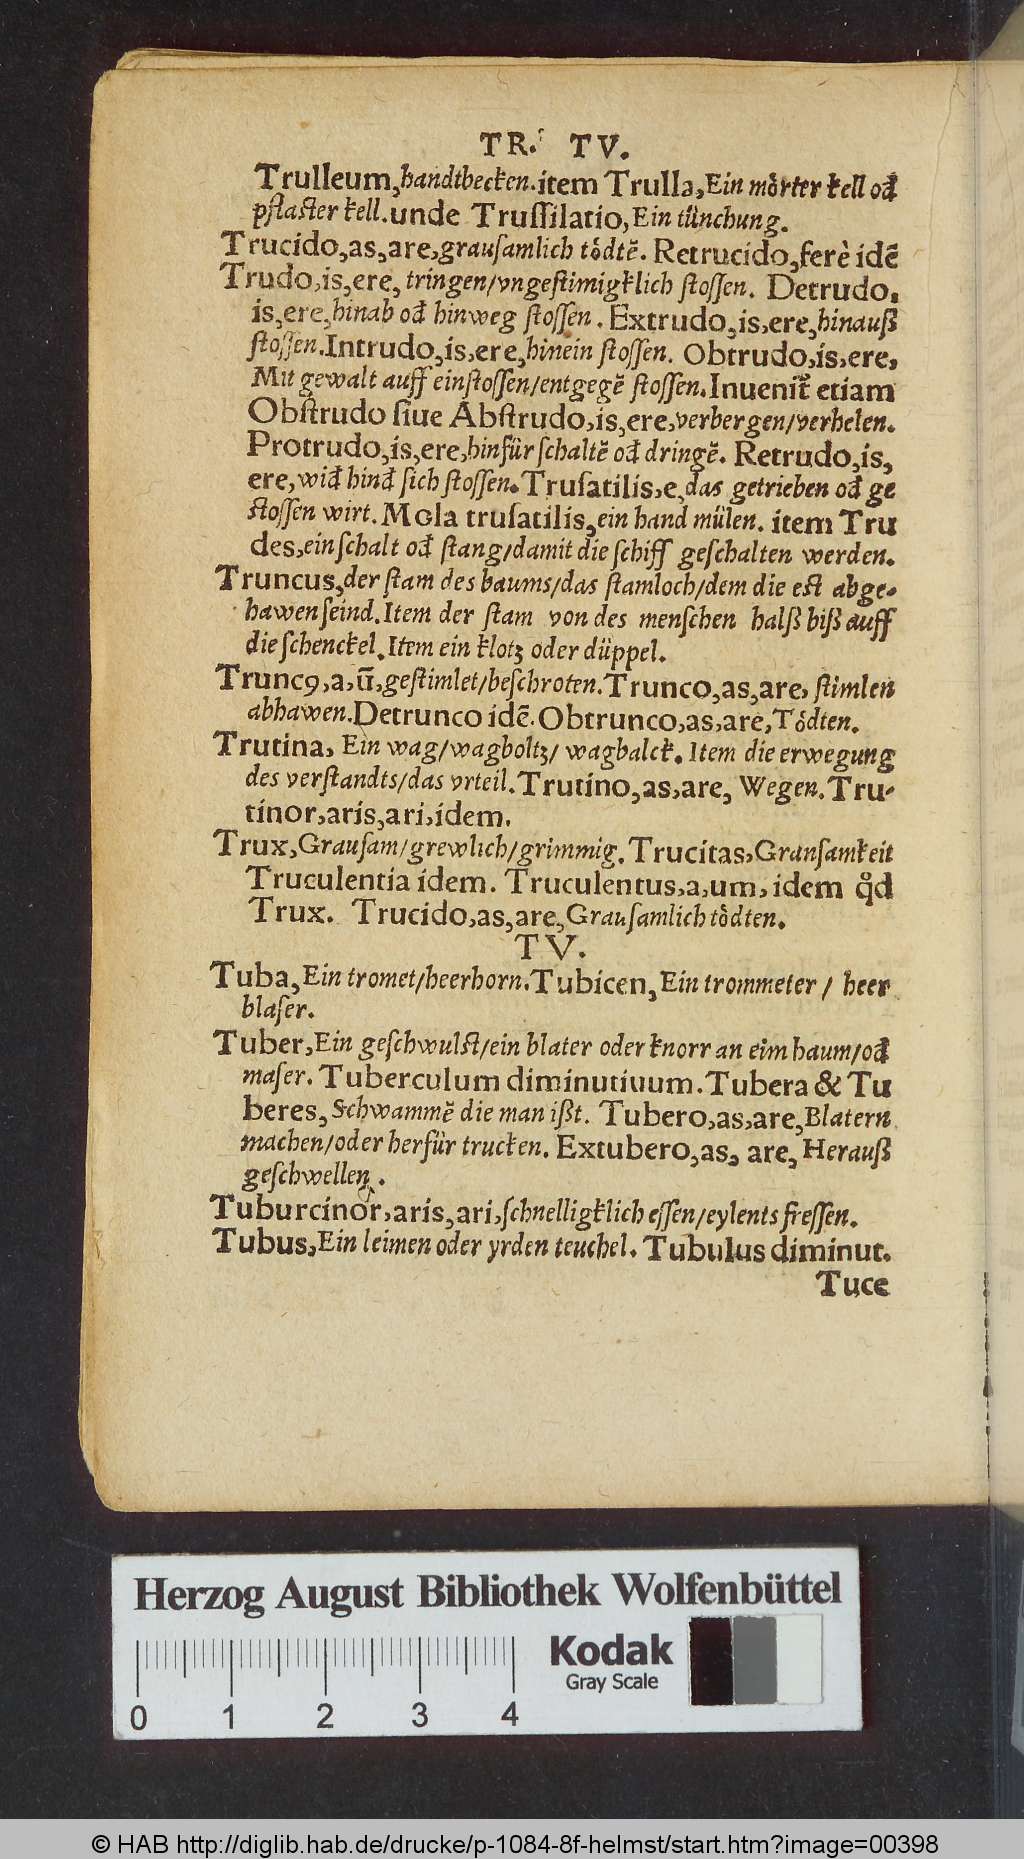 TR. TV.
Trulleum, handtbecken. item Trulla, Ein mörter kell od̃
pflaster kell. unde Trussilatio, Ein tünchung.
Trucido, as, are, grausamlich tödtẽ. Retrucido, ferè idẽ
Trudo, is, ere, tringen/vngestimigklich stossen. Detrudo,
is, ere, hinab od̃ hinweg stossen. Extrudo, is, ere, hinauß
stossen. Intrudo, is, ere, hinein stossen. Obtrudo, is, ere,
Mit gewalt auff einstossen/entgegẽ stossen. Inuenit̃ etiam
Obstrudo siue Abstrudo, is, ere, verbergen/verhelen.
Protrudo, is, ere, hinfür schaltẽ od̃ dringẽ. Retrudo, is,
ere, wid̃ hind̃ sich stossen. Trusatilis, e, das getrieben od̃ ge
stossen wirt. Mola trusatilis, ein hand mülen. item Tru
des, ein schalt od̃ stang/damit die schiff geschalten werden.
Truncus, der stam des baums/das stamloch/dem die est abge-
hawen seind. Item der stam von des menschen halß biß auff
die schenckel. Item ein klotz oder düppel.
Truncꝯ, a, ũ, gestimlet/beschroten. Trunco, as, are, stimlen
abhawen. Detrunco idẽ. Obtrunco, as, are, Tödten.
Trutina, Ein wag/wagholtz/ wagbalck. Item die erwegung
des verstandts/das vrteil. Trutino, as, are, Wegen. Tru-
tinor, aris, ari, idem.
Trux, Grausam/grewlich/grimmig. Trucitas, Gransamkeit
Truculentia idem. Truculentus, a, um, idem qd̃
Trux. Trucido, as, are, Grausamlich tödten.
TV.
Tuba, Ein tromet/heerhorn. Tubicen, Ein trommeter/ heer
blaser.
Tuber, Ein geschwulst/ein blater oder knorr an eim baum/od̃
maser. Tuberculum diminutiuum. Tubera & Tu
beres, Schwammẽ die man ißt. Tubero, as, are, Blatern
machen/oder herfür trucken. Extubero, as, are, Herauß
geschwellen.
Tuburcinor, aris, ari, schnelligklich essen/eylents fressen.
Tubus, Ein leimen oder yrden teuchel. Tubulus diminut.
Tuce
Herzog August Bibliothek Wolfenbüttel
Kodak
Gray Scale
0 1 2 3 4
© HAB http://diglib.hab.de/drucke/p-1084-8f-helmst/start.htm?image=00398